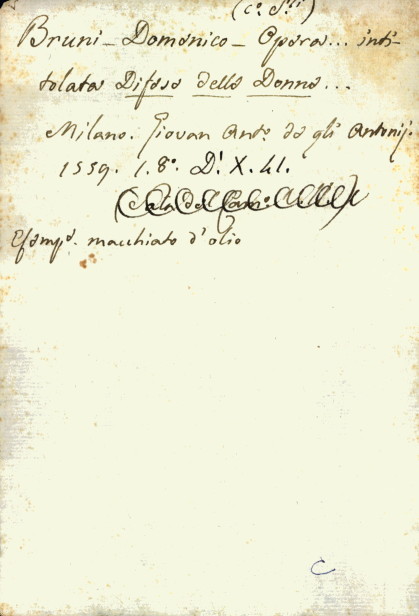 (co. Sti)
Bruni - Domenico - Opera... inti-
tolata Difesa delle Donne...
Milano. Giovan Anto. de gli Antonij.
1559. 1. 8o. D. X. 41.
Esempo. macchiato d'olio
C